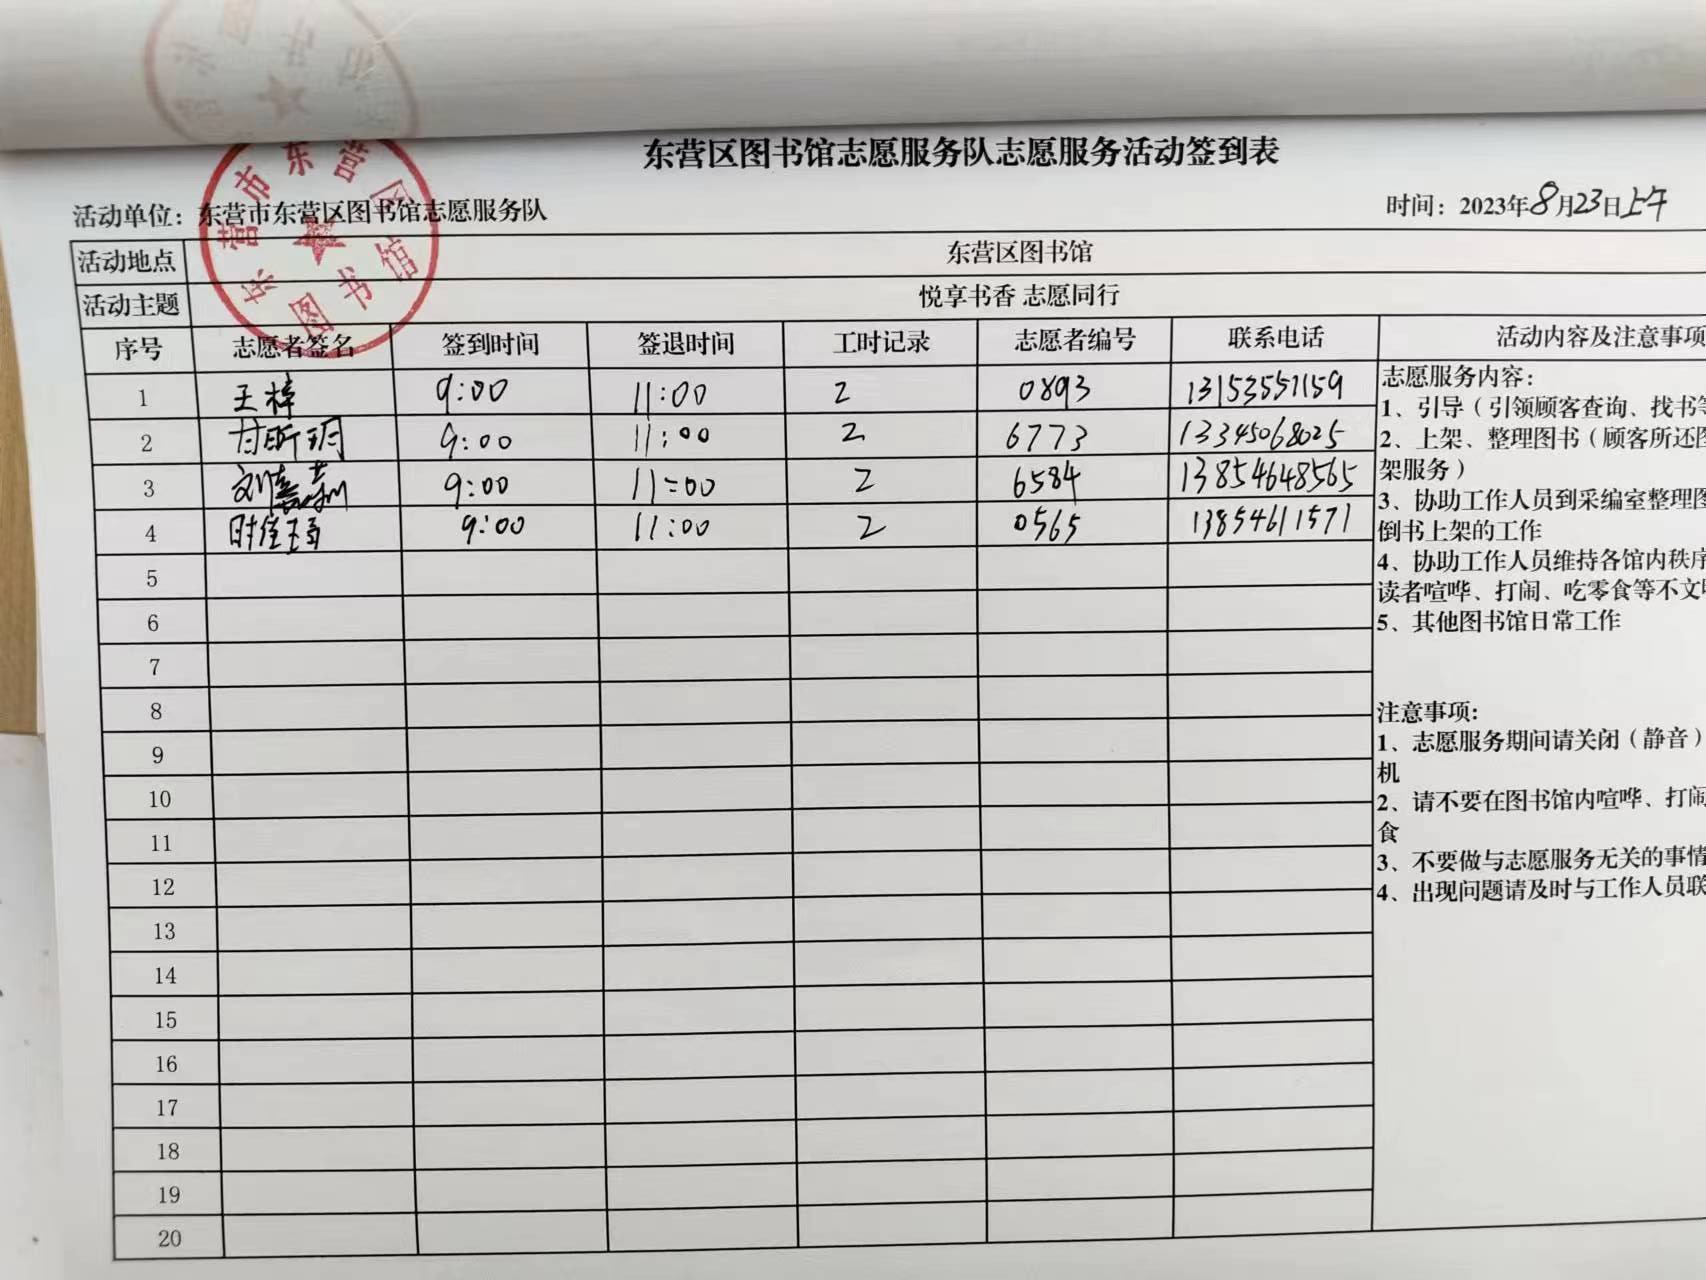 东营区图书馆志愿服务队志愿服务活动签到表
活动单位：东营市东营区图书馆志愿服务队 时间：2023年8月23日上午
东营市东营区图书馆
活动地点 东营区图书馆
活动主题 悦享书香 志愿同行
序号 志愿者签名 签到时间 签退时间 工时记录 志愿者编号 联系电话 活动内容及注意事项
1 王梓 9:00 11:00 2 0893 13153551159
2 甘昕玥 9:00 11:00 2 6773 13345068025
3 刘 9:00 11:00 2 6584 13854648565
4 时 9:00 11:00 2 0565 13854611571
5
6
7
8
9
10
11
12
13
14
15
16
17
18
19
20
志愿服务内容：
1、引导（引领顾客查询、找书等
2、上架、整理图书（顾客所还图
架服务）
3、协助工作人员到采编室整理图
倒书上架的工作
4、协助工作人员维持各馆内秩序
读者喧哗、打闹、吃零食等不文明
5、其他图书馆日常工作
注意事项：
1、志愿服务期间请关闭（静音）
机
2、请不要在图书馆内喧哗、打闹
食
3、不要做与志愿服务无关的事情
4、出现问题请及时与工作人员联